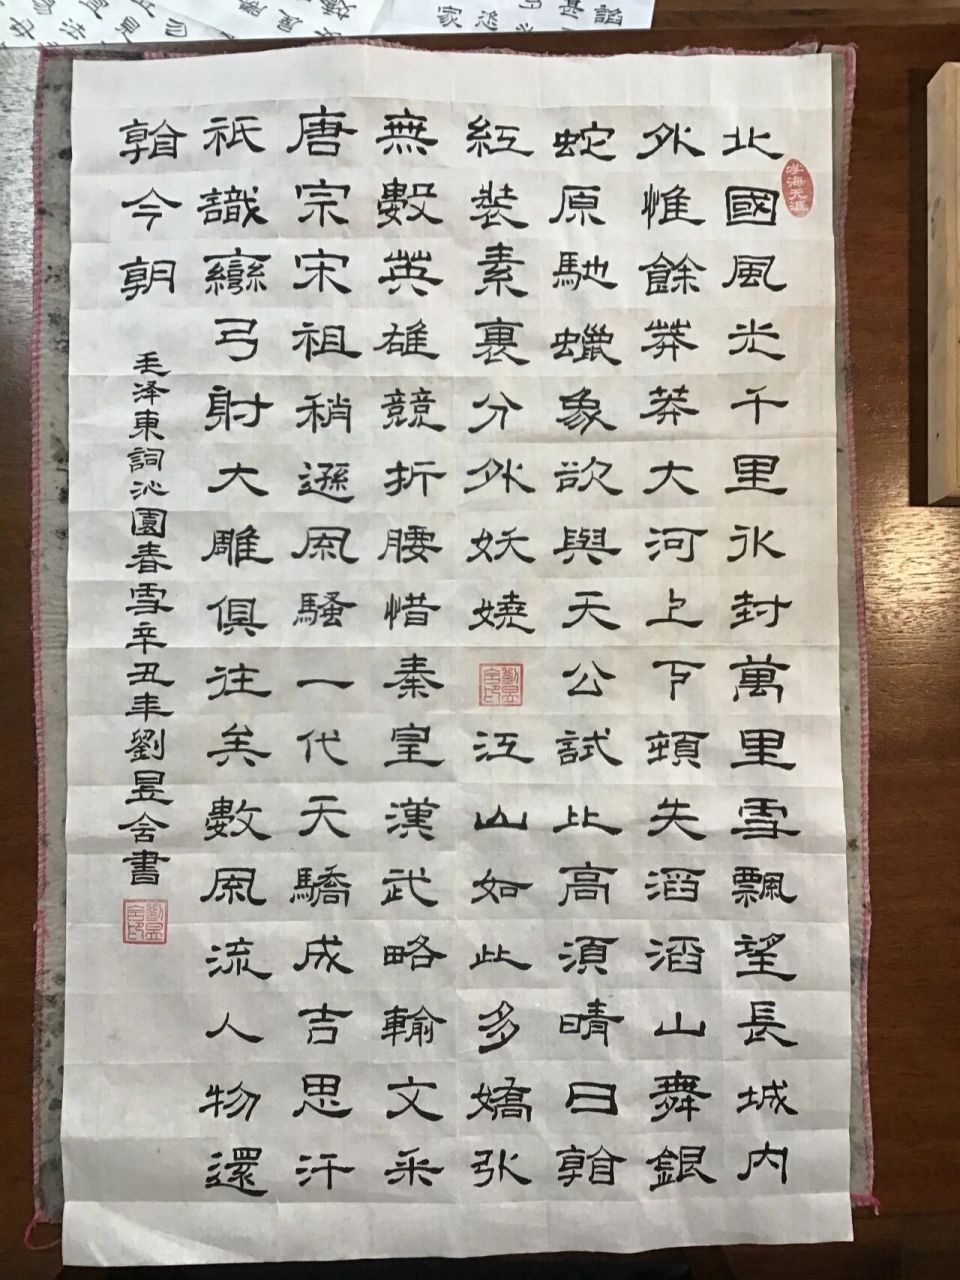 學海无涯
北國風光千里冰封萬里雪飄望長城内
外惟餘莽莽大河上下頓失滔滔山舞銀
蛇原馳蠟象欲與天公試比高須晴日看
紅裝素裹分外妖嬈江山如此多嬌引
無數英雄競折腰惜秦皇漢武略輸文采
唐宗宋祖稍遜風騷一代天驕成吉思汗
祇識彎弓射大雕俱往矣數風流人物還
看今朝
毛泽東詞沁園春雪辛丑年劉昱含書